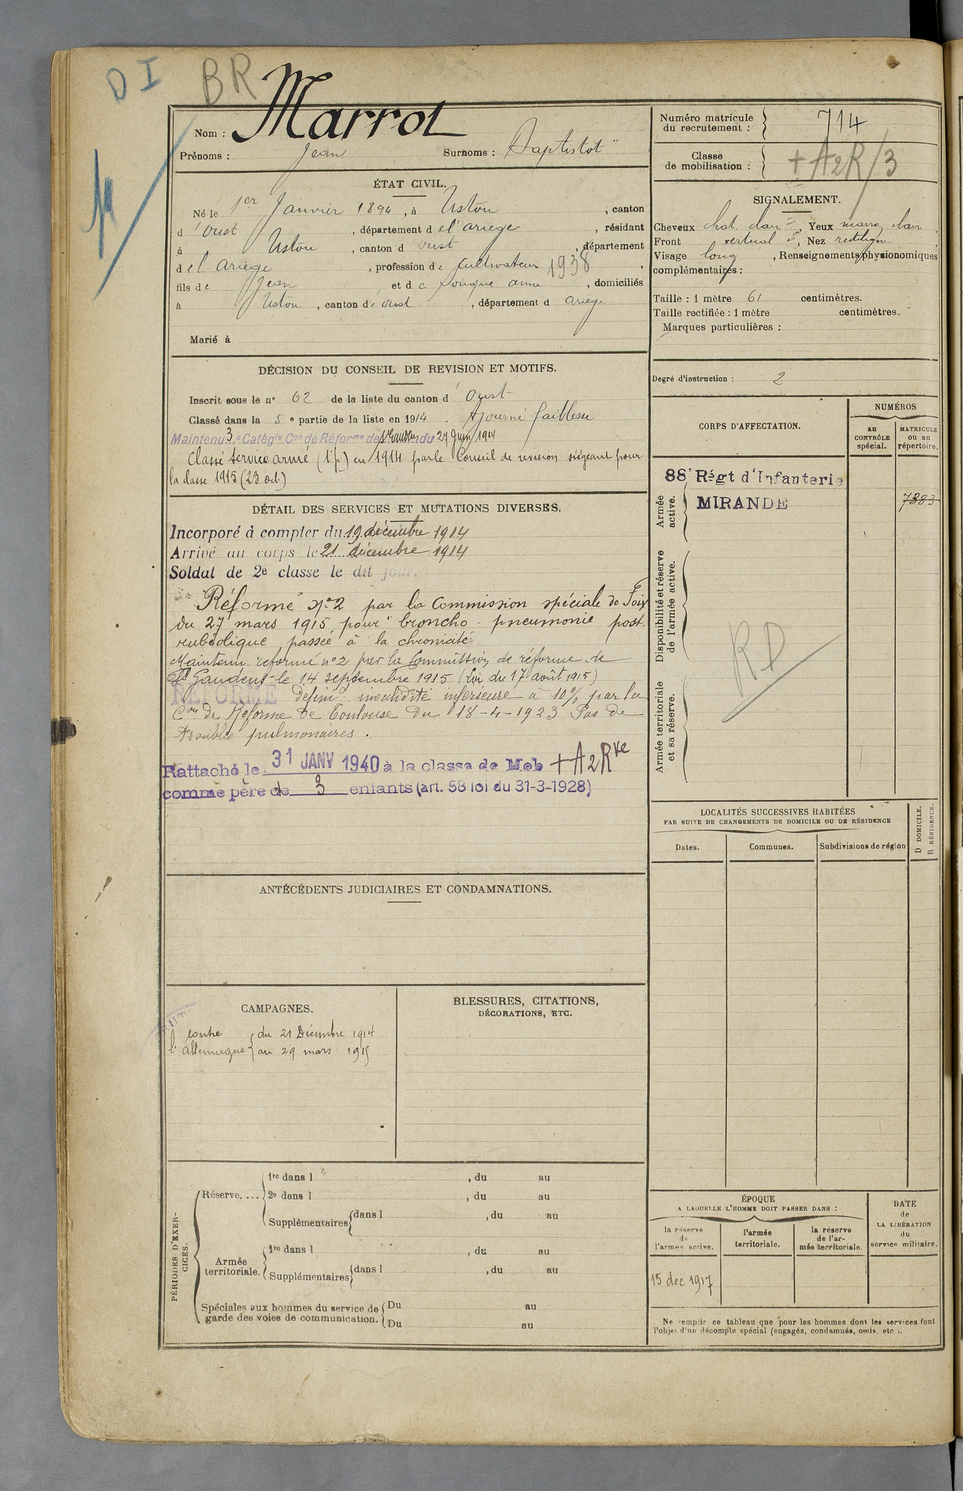 DI BR
Nom : Marrot
Prénoms : Jean Surnoms : Baptistot"
ÉTAT CIVIL.
Né le 1er Janvier 1894, à Ustou, canton
d'Oust, département de l'ariège, résidant
à Ustou, canton d oust, département
de l'ariège, profession de cultivateur 1938
fils de Jean et de Souque anne, domiciliés
à Ustou, canton de oust, département d ariege
Marié à
DÉCISION DU CONSEIL DE REVISION ET MOTIFS.
Inscrit sous le nº 62 de la liste du canton d'Oust
Classé dans la 5e partie de la liste en 1914. Ajourné faiblesse
Maintenu 3e Catégie Con de Réforme de du 29 Juin 1914
Classé service armé (1ère p.) en 1914 par le Conseil de revision siégeant pour
la classe 1915 (23 oct.)
DÉTAIL DES SERVICES ET MUTATIONS DIVERSES.
Incorporé à compter du 19 décembre 1914
Arrivé au corps le 21 décembre 1914
Soldat de 2e classe le dit jour.
Réformé nº2 par la Commission spéciale de Foix
du 27 mars 1915 pour "broncho-pneumonie post
rubéolique passée à la chronicité
Maintenu réformé nº2 par la Commission de réforme de
St Gaudens le 14 septembre 1915 (Loi du 17 août 1915)
RÉFORMÉ définif invalidité inférieure à 10% par la
Con de Réforme de Toulouse du 18-4-1923 Pas de
troubles pulmonaires.
Rattaché le 31 JANV 1940 à la classe de Mob + A2Rve
comme père de 3 enfants (art. 58 loi du 31-3-1928)
ANTÉCÉDENTS JUDICIAIRES ET CONDAMNATIONS.
CAMPAGNES.
contre du 21 Décembre 1914
l'Allemagne au 29 mars 1915
BLESSURES, CITATIONS,
DÉCORATIONS, ETC.
PÉRIODES D'EXERCICES.
Réserve.... 1re dans l , du au
2e dans l , du au
Supplémentaires dans l , du au
Armée territoriale. 1re dans l , du au
Supplémentaires dans l , du au
Spéciales aux hommes du service de garde des voies de communication. Du au
Du au
Numéro matricule du recrutement : 714
Classe de mobilisation : + A2R/3
SIGNALEMENT.
Cheveux chat. clair, Yeux marron clair,
Front vertical, Nez rectiligne
Visage long, Renseignements physionomiques
complémentaires :
Taille : 1 mètre 61 centimètres.
Taille rectifiée : 1 mètre centimètres.
Marques particulières :
Degré d'instruction : 2
CORPS D'AFFECTATION.
NUMÉROS
AU CONTRÔLE spécial.
MATRICULE OU AU répertoire.
Armée active.
88e Régt d'Infanterie
MIRANDE
7383
Disponibilité et réserve de l'armée active.
RD
Armée territoriale et sa réserve.
LOCALITÉS SUCCESSIVES HABITÉES
PAR SUITE DE CHANGEMENTS DE DOMICILE OU DE RÉSIDENCE
Dates.
Communes.
Subdivisions de région
D DOMICILE.
R RÉSIDENCE.
ÉPOQUE
A LAQUELLE L'HOMME DOIT PASSER DANS :
la réserve de l'armée active.
l'armée territoriale.
la réserve de l'armée territoriale.
DATE
de
LA LIBÉRATION
du
service militaire.
15 dec 1917
Ne remplir ce tableau que pour les hommes dont les services font
l'objet d'un décompte spécial (engagés, condamnés, omis, etc.).